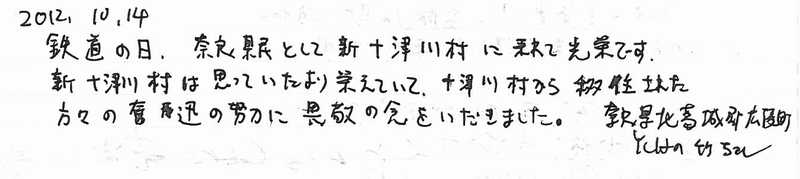 2012.10.14
鉄道の日、奈良県民として新十津川村に来れて光栄です.
新十津川村は思っていたより栄えていて、十津川村から移住された
方々の奮迅の努力に畏敬の念をいだきました。 奈良県北葛城郡広陵町